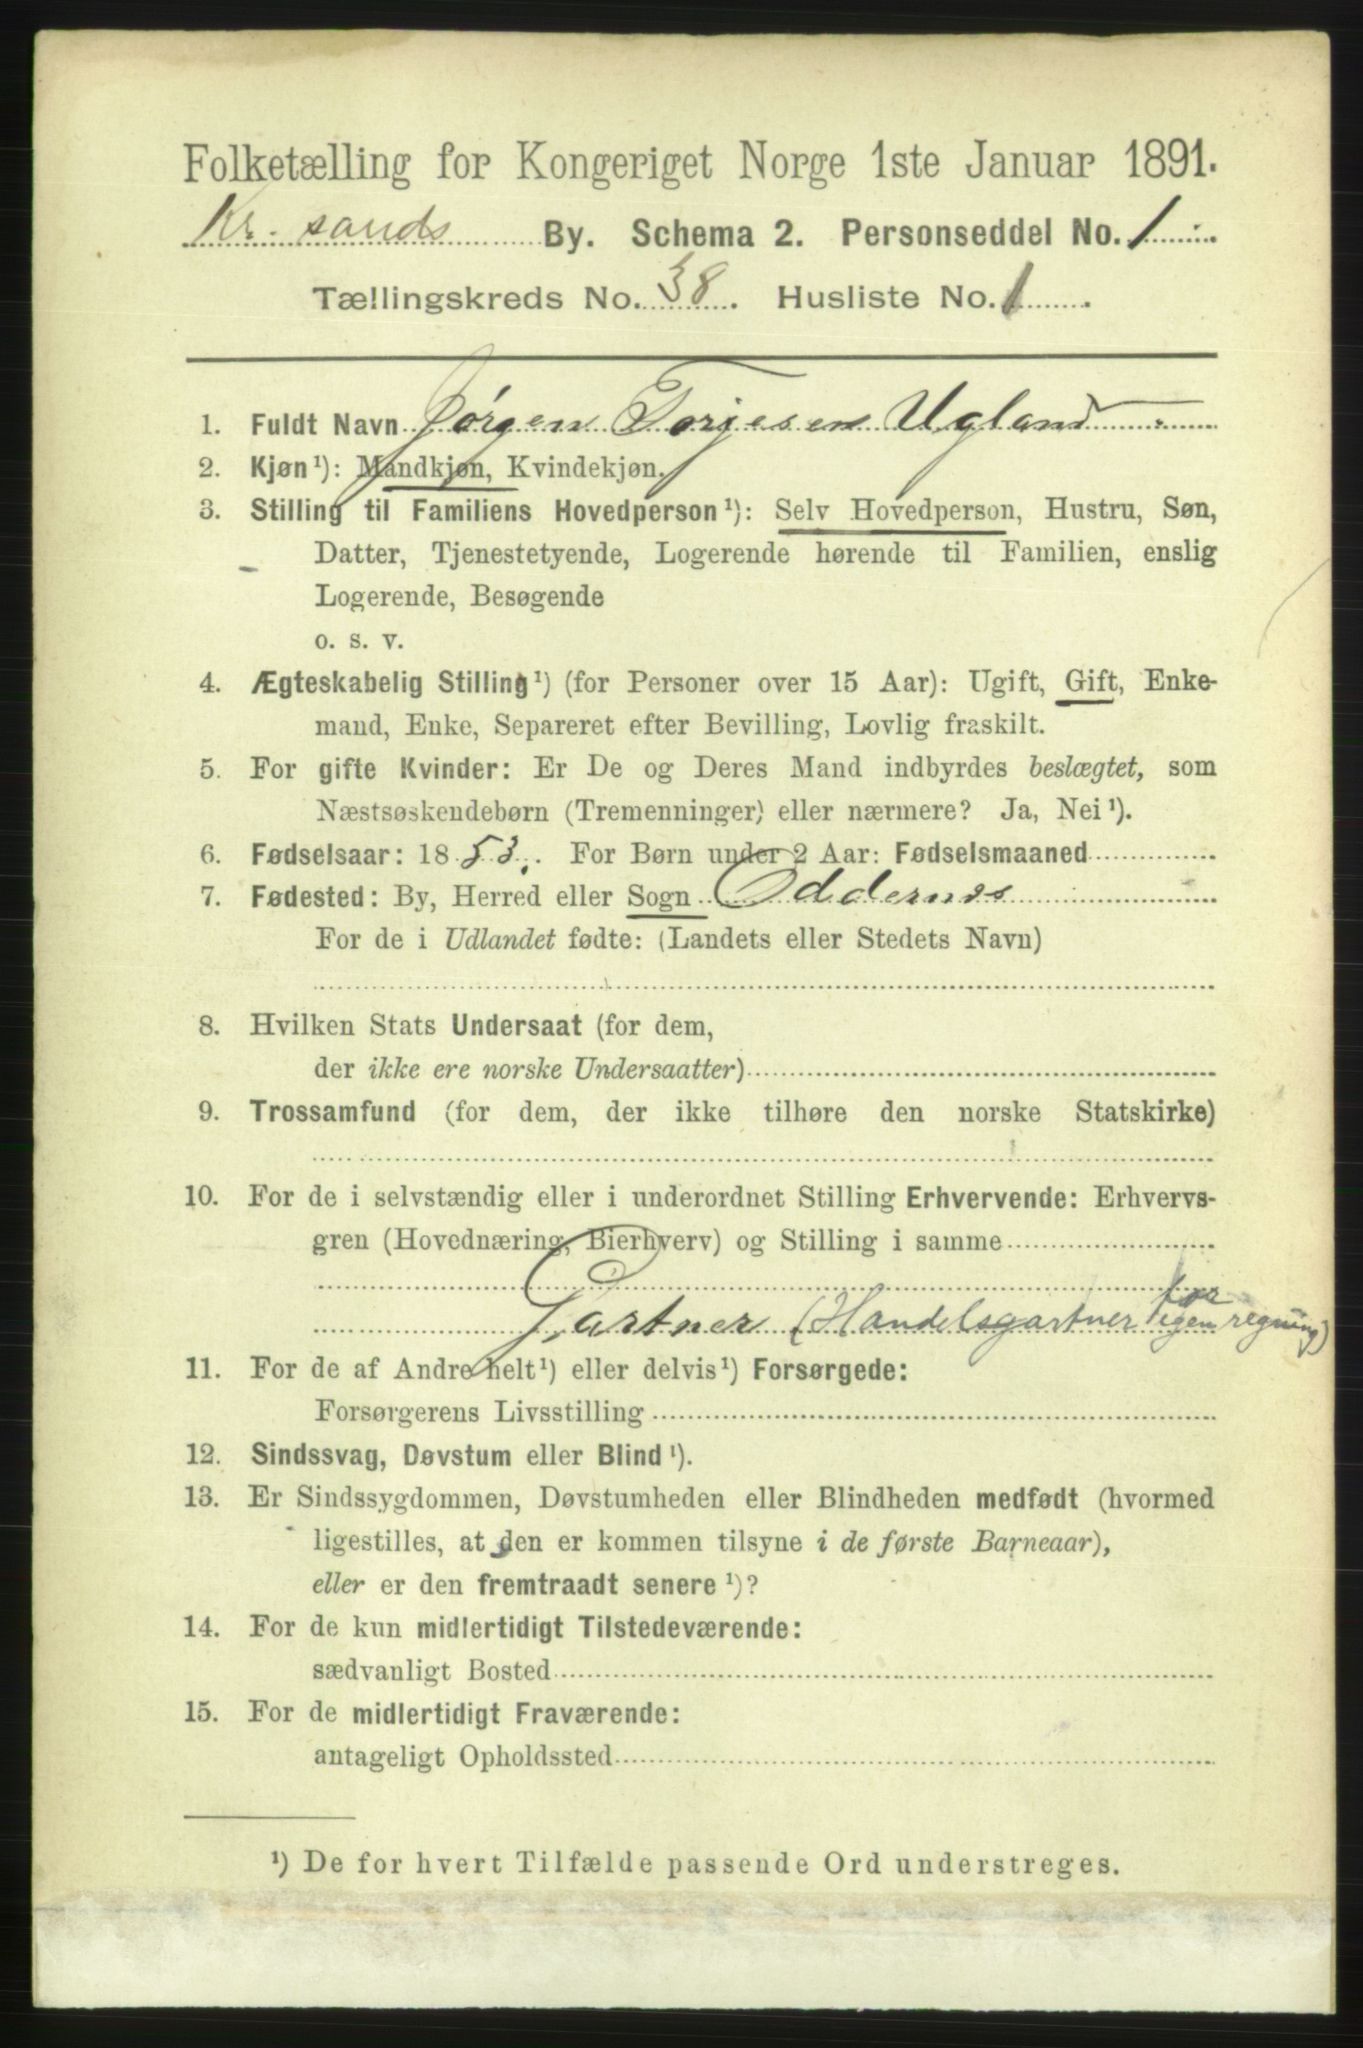 Folketælling for Kongeriget Norge 1ste Januar 1891.
Kr. sands By. Schema 2. Personseddel No. 1
Tællingskreds No. 38. Husliste No. 1.
1. Fuldt Navn Jørgen Torjesen Ugland.
2. Kjøn¹): Mandkjøn, Kvindekjøn.
3. Stilling til Familiens Hovedperson¹): Selv Hovedperson, Hustru, Søn,
Datter, Tjenestetyende, Logerende hørende til Familien, enslig
Logerende, Besøgende
o. s. v.
4. Ægteskabelig Stilling¹) (for Personer over 15 Aar): Ugift, Gift, Enke-
mand, Enke, Separeret efter Bevilling, Lovlig fraskilt.
5. For gifte Kvinder: Er De og Deres Mand indbyrdes beslægtet, som
Næstsøskendebørn (Tremenninger) eller nærmere? Ja, Nei¹).
6. Fødselsaar: 1853. For Børn under 2 Aar: Fødselsmaaned
7. Fødested: By, Herred eller Sogn Oddernes
For de i Udlandet fødte: (Landets eller Stedets Navn)
8. Hvilken Stats Undersaat (for dem,
der ikke ere norske Undersaatter)
9. Trossamfund (for dem, der ikke tilhøre den norske Statskirke)
10. For de i selvstændig eller i underordnet Stilling Erhvervende: Erhvervs-
gren (Hovednæring, Bierhverv) og Stilling i samme
Gartner (Handelsgartner for egen regning)
11. For de af Andre helt¹) eller delvis¹) Forsørgede:
Forsørgerens Livsstilling
12. Sindssvag, Døvstum eller Blind¹).
13. Er Sindssygdommen, Døvstumheden eller Blindheden medfødt (hvormed
ligestilles, at den er kommen tilsyne i de første Barneaar),
eller er den fremtraadt senere¹)?
14. For de kun midlertidigt Tilstedeværende:
sædvanligt Bosted
15. For de midlertidigt Fraværende:
antageligt Opholdssted
¹) De for hvert Tilfælde passende Ord understreges.